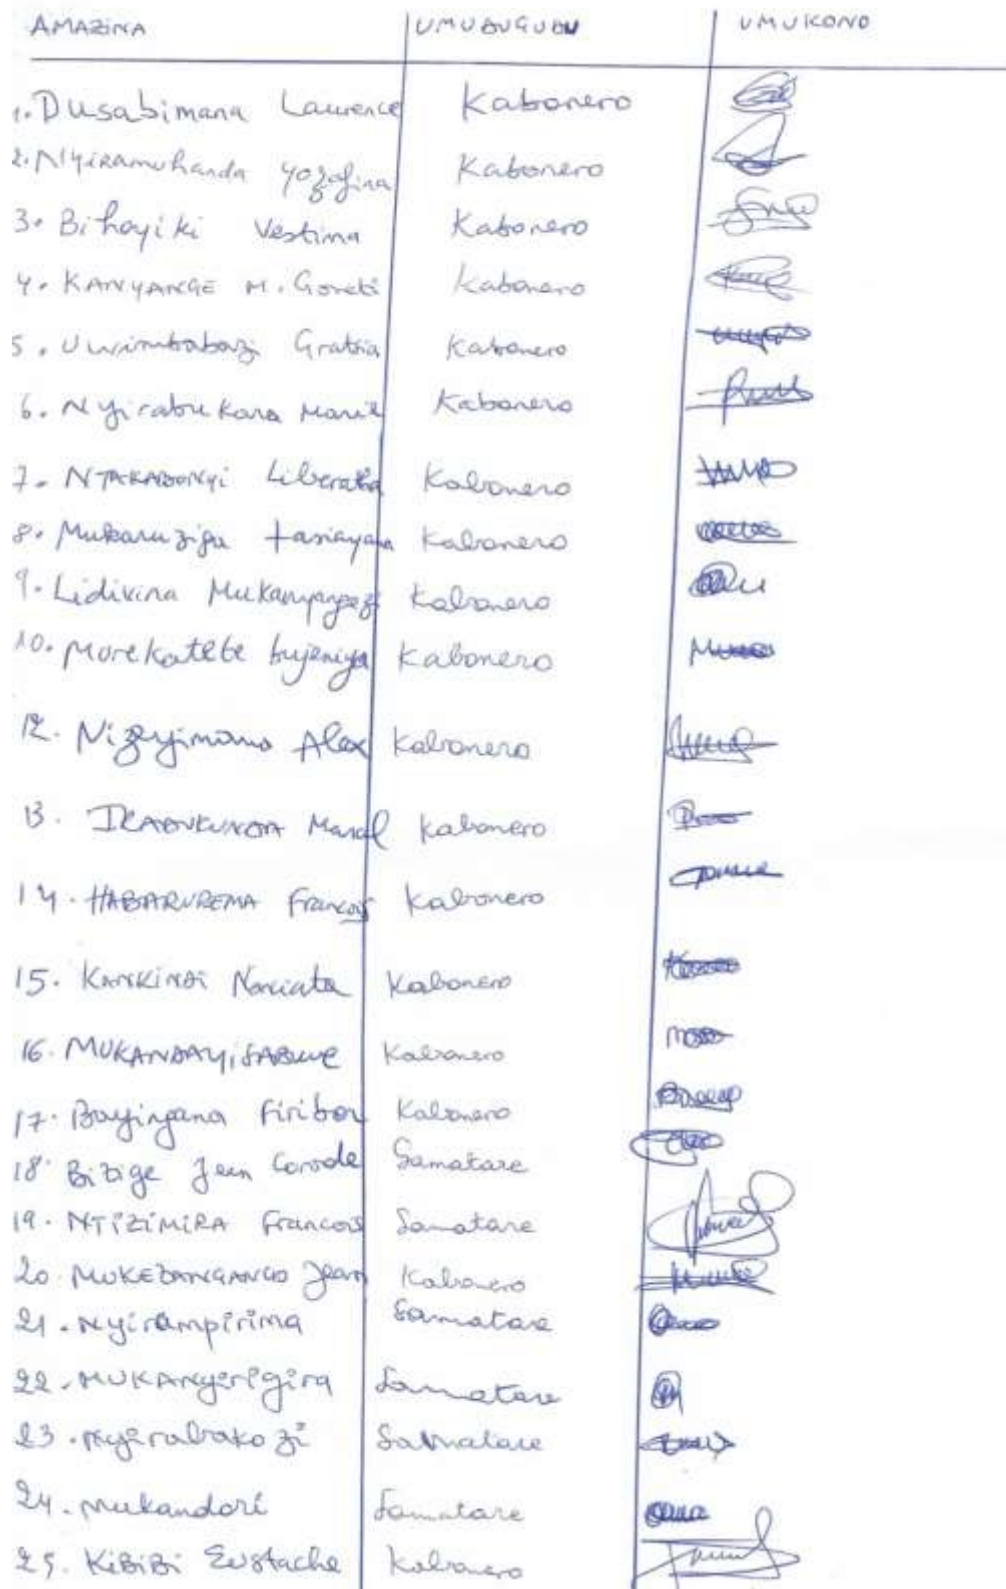 AMAZINA UMUDUGUDU UMUKONO
1. Dusabimana Laurence Kabonero
2. Nyiramuhanda Yozofina Kabonero
3. Bihoyiki Vestina Kabonero
4. KANYANGE M. Goreti Kabonero
5. Uwimbabazi Gratsia Kabonero
6. Nyirabukara Marie Kabonero
7. NTAKABONYI Liberata Kabonero
8. Mukaruziga Kabonero
9. Lidivina Kabonero
10. Morekatete Kabonero
12. Nizeyimana Alex Kabonero
13. Kabonero
14. HABARUREMA Francois Kabonero
15. KANKINDI Kabonero
16. MUKANDAYISABWE Kabonero
17. Bayingana Firibor Kabonero
18. Bizige Jean Samatare
19. NTIZIMIRA Francois Samatare
20. Jean Kabonero
21. Nyirampirima Samatare
22. MUKANyerigira Samatare
23. Nyirabakozi Samatare
24. Mukandori Samatare
25. KiBiBi Eustache Kabonero